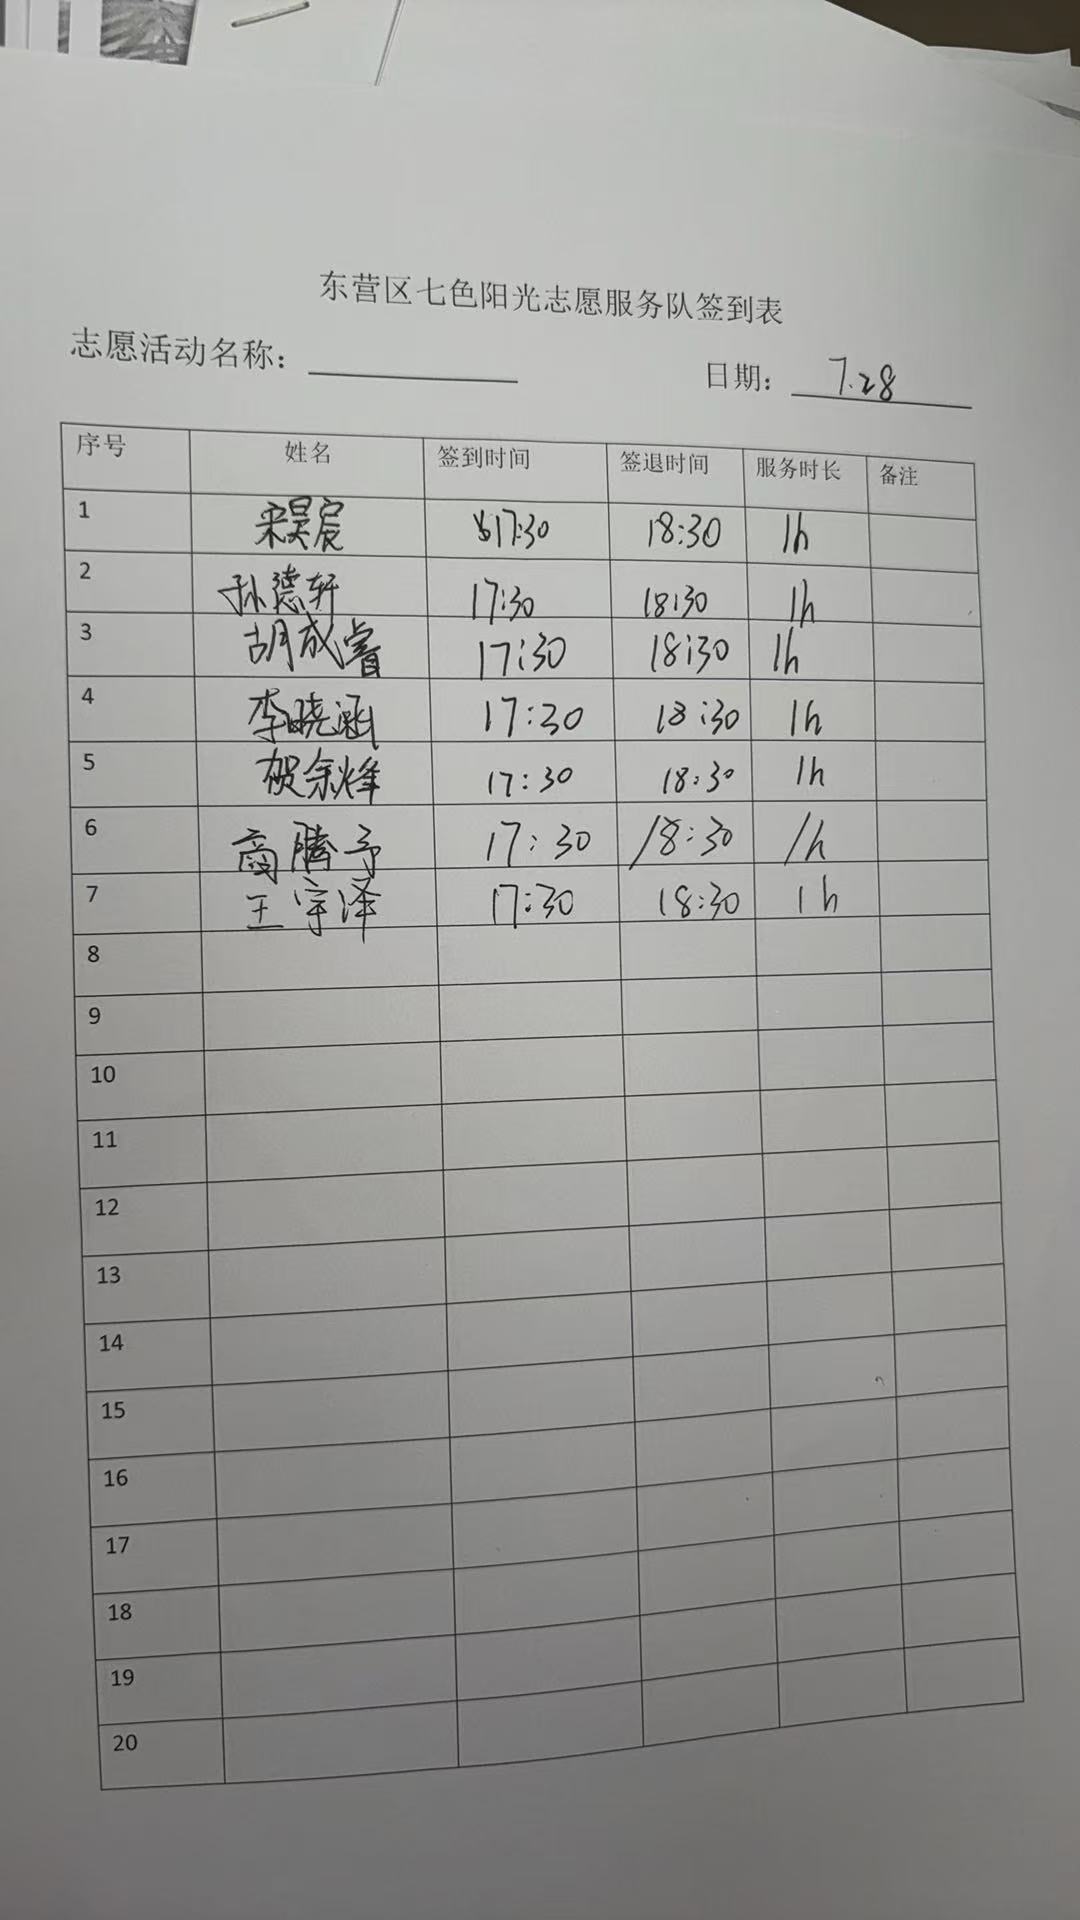 东营区七色阳光志愿服务队签到表
志愿活动名称： 日期： 7.28
序号 姓名 签到时间 签退时间 服务时长 备注
1 宋昊宸 17:30 18:30 1h
2 孙德轩 17:30 18:30 1h
3 胡成睿 17:30 18:30 1h
4 李晓涵 17:30 18:30 1h
5 贺余烽 17:30 18:30 1h
6 商腾予 17:30 18:30 1h
7 王宇泽 17:30 18:30 1h
8
9
10
11
12
13
14
15
16
17
18
19
20